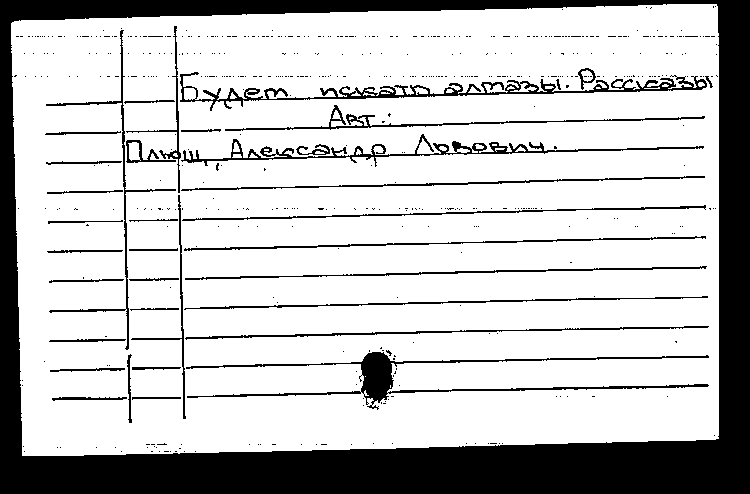 Будет искать алмазы. Рассказы
Авт.:
Плющ, Александр Львович.